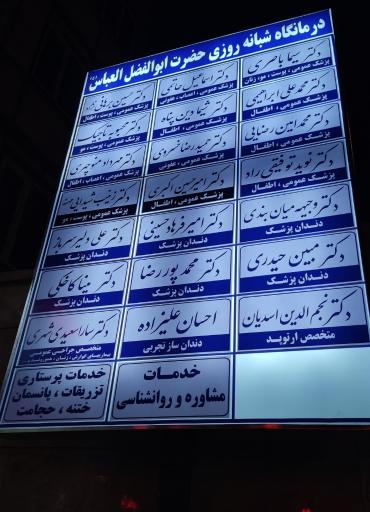 درمانگاه شبانه روزی حضرت ابوالفضل العباس (ع)
دکتر سیما باصری
پزشک عمومی ، پوست ، مو، زنان
دکتر اسماعیل حاتمی
پزشک عمومی ، اعصاب ، عفونی
دکتر حسین برهانی نژاد
پزشک عمومی ، پوست ، اطفال
دکتر محمدعلی ابراهیمی
پزشک عمومی ، اطفال
دکتر شیما دین پناه
پزشک عمومی ، اطفال
دکتر محبوبه تاجیک
پزشک عمومی ، پوست ، مو
دکتر محمد امین رضایی
پزشک عمومی ، اطفال
دکتر حمیدرضا خسروی
پزشک عمومی ، عفونی
دکتر مهرداد منوچهری
پزشک عمومی ، اعصاب ، اطفال
دکتر نوید توفیقی راد
پزشک عمومی ، اطفال
دکتر امیرحسین اکبری
پزشک عمومی ، اطفال
دکتر
پزشک عمومی ، پوست ، مو
دکتر وجیهه میان بندی
دندان پزشک
دکتر امیر فرهاد حسینی
دندان پزشک
دکتر علی دلیر سرباز
دندان پزشک
دکتر مبین حیدری
دندان پزشک
دکتر محمد پور رضا
دندان پزشک
دکتر مینا کاخکی
دندان پزشک
دکتر نجم الدین اسدیان
متخصص ارتوپد
احسان علیزاده
دندان ساز تجربی
دکتر سارا سعیدی
متخصص جراحی عمومی
خدمات
مشاوره و روانشناسی
خدمات پرستاری
تزریقات ، پانسمان
ختنه ، حجامت